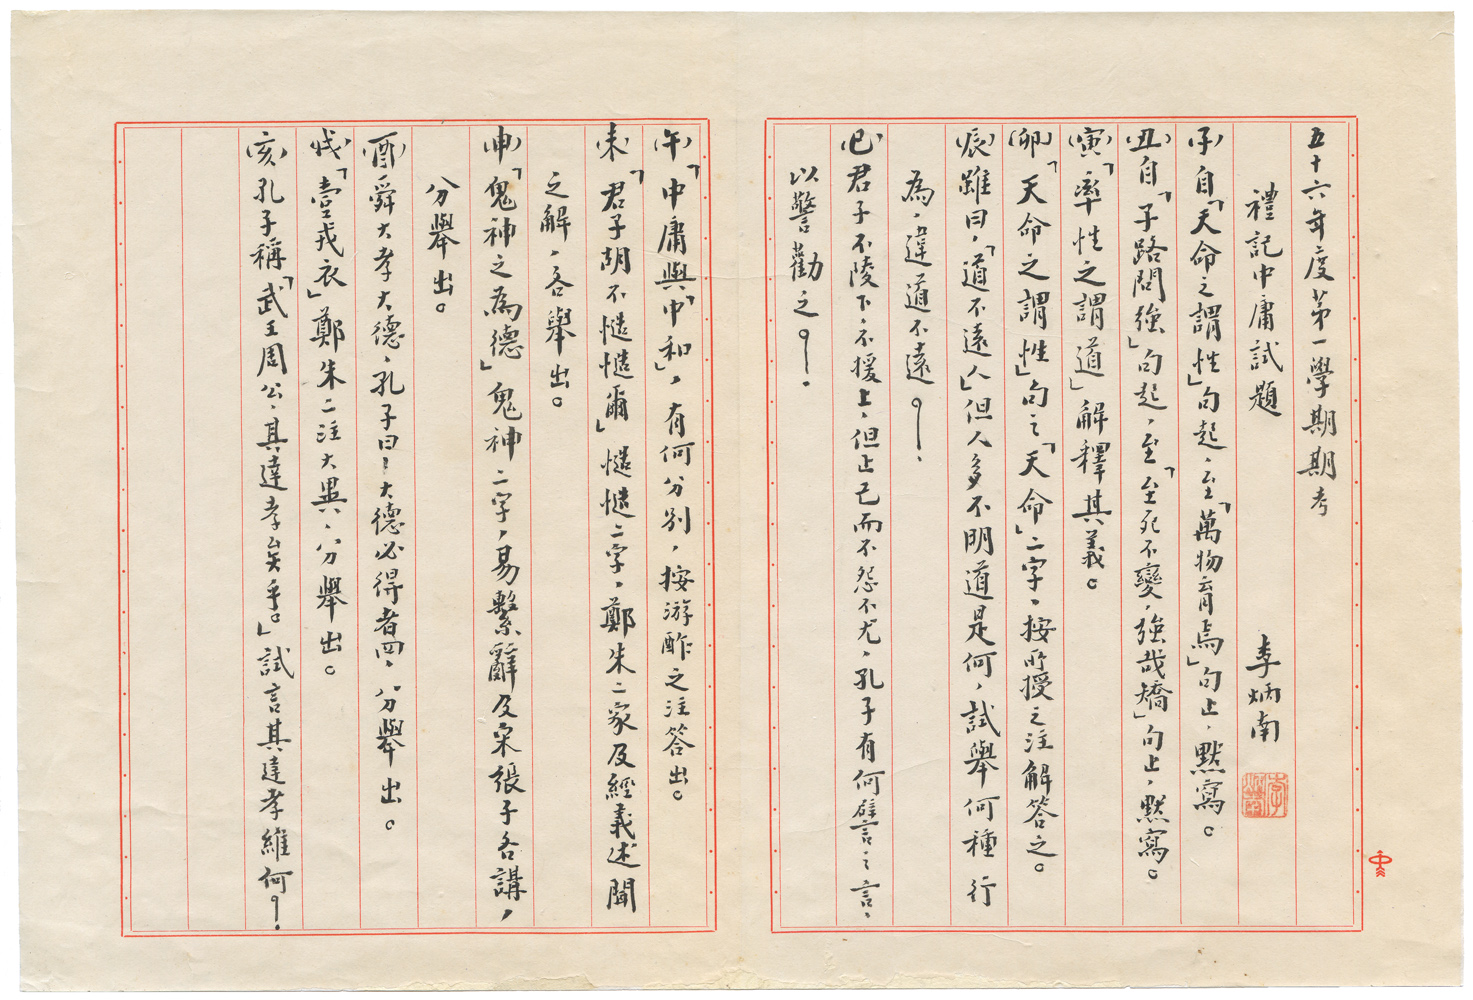 五十六年度第一學期期考
禮記中庸試題 李炳南
(子)自「天命之謂性」句起、至「萬物育焉」句止、默寫。
(丑)自「子路問強」句起、至「至死不變、強哉矯」句止、默寫。
(寅)「率性之謂道」解釋其義。
(卯)「天命之謂性」句之「天命」二字、按所授之注解答之。
(辰)雖曰、「道不遠人」但人多不明道是何、試舉何種行
為、違道不遠?
(巳)君子不陵下、不援上、但止己而不怨不尤、孔子有何譬之言、
以警勸之?
(午)「中庸與「中和」、有何分別、按游酢之注答出。
(未)「君子胡不慥慥爾」慥慥二字、鄭朱二家及經義述聞
之解、各舉出。
(申)「鬼神之為德」鬼神二字、易繫辭及宋張子各講、
分舉出。
(酉)舜大孝大德、孔子曰:大德必得者四、分舉出。
(戌)「壹戎衣」鄭朱二注大異、分舉出。
(亥)孔子稱「武王周公、其達孝矣乎。」試言其達孝維何?